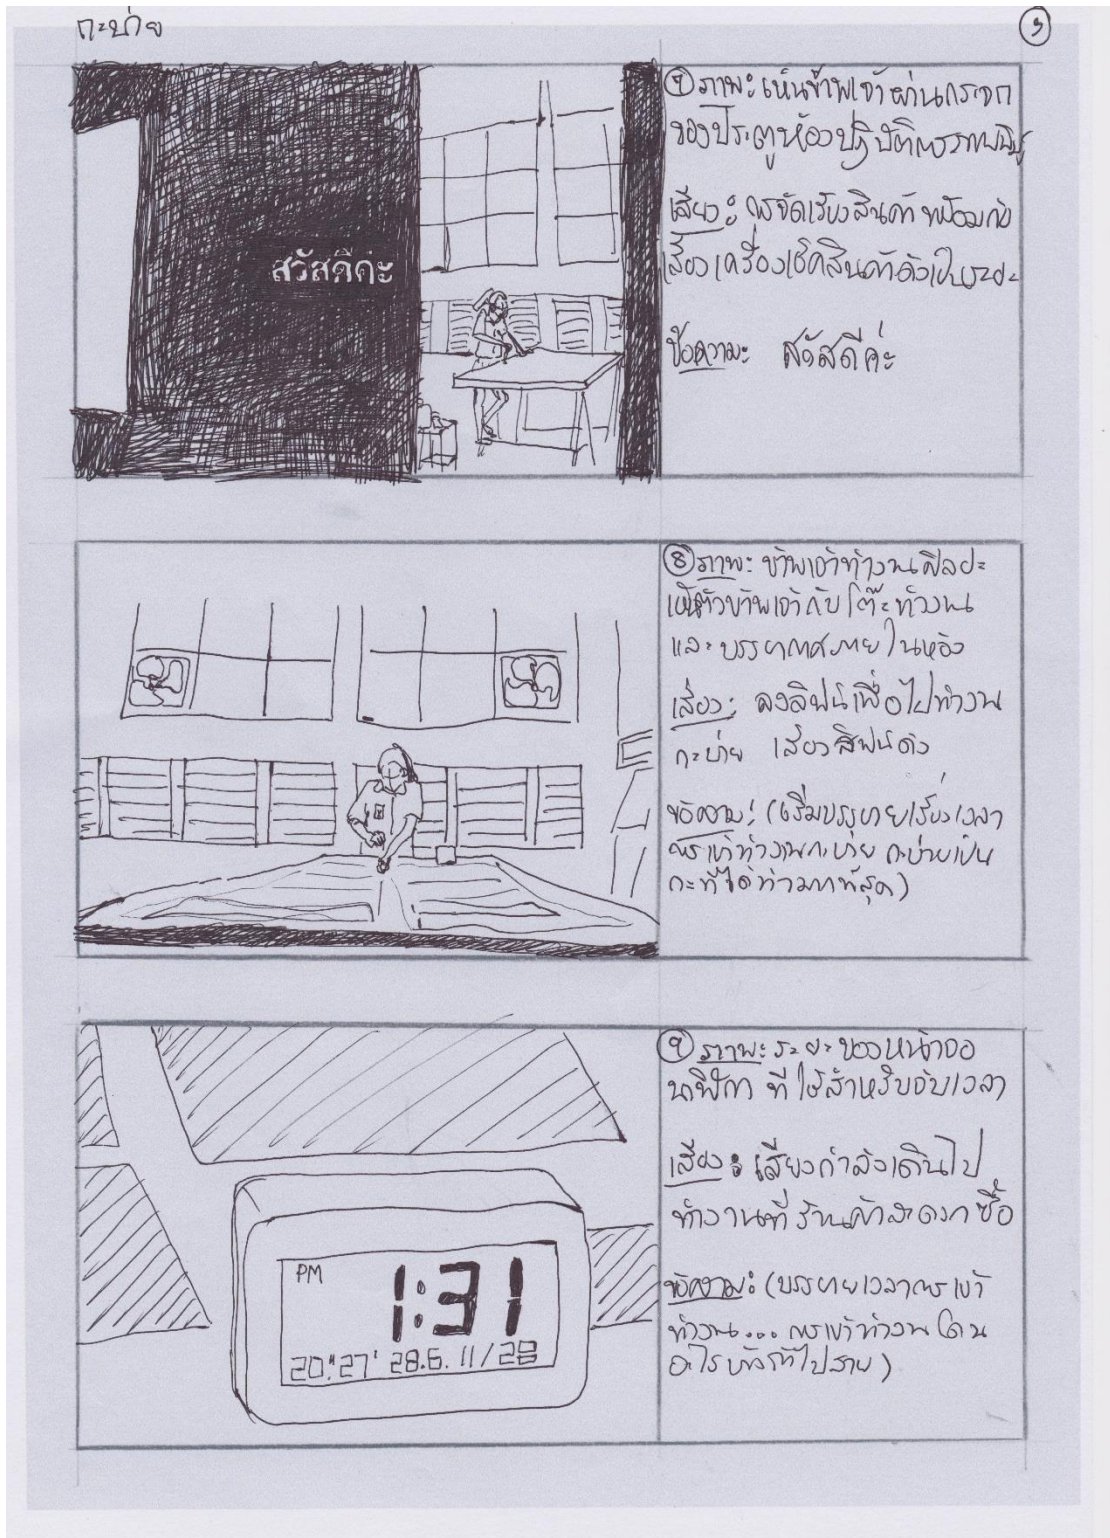 กะบ่าย
๓
สวัสดีค่ะ
๗ ภาพ: เห็นข้าพเจ้าผ่านกระจก
ของประตูห้องปฏิบัติการภาพพิมพ์
เสียง: การจัดเรียงสินค้า พร้อมกับ
เสียงเครื่องเช็คสินค้าดังเป็นระยะ
ข้อความ: สวัสดีค่ะ
๘ ภาพ: ข้าพเจ้าทำงานศิลปะ
เห็นตัวข้าพเจ้ากับโต๊ะทำงาน
และบรรยากาศภายในห้อง
เสียง: ลงลิฟน์เพื่อไปทำงาน
กะบ่าย เสียงลิฟน์ดัง
ข้อความ: (เริ่มบรรยายเรื่องเวลา
การเข้าทำงานกะบ่าย กะบ่ายเป็น
กะที่ได้ทำมากที่สุด)
๙ ภาพ: ระยะของหน้าจอ
นาฬิกา ที่ใช้สำหรับจับเวลา
เสียง: เสียงกำลังเดินไป
ทำงานที่ร้านค้าสะดวกซื้อ
ข้อความ: (บรรยายเวลาการเข้า
ทำงาน... การเข้าทำงานโดน
อะไรบ้างถ้าไปสาย)
PM
1:31
20:27' 28.6. 11/28